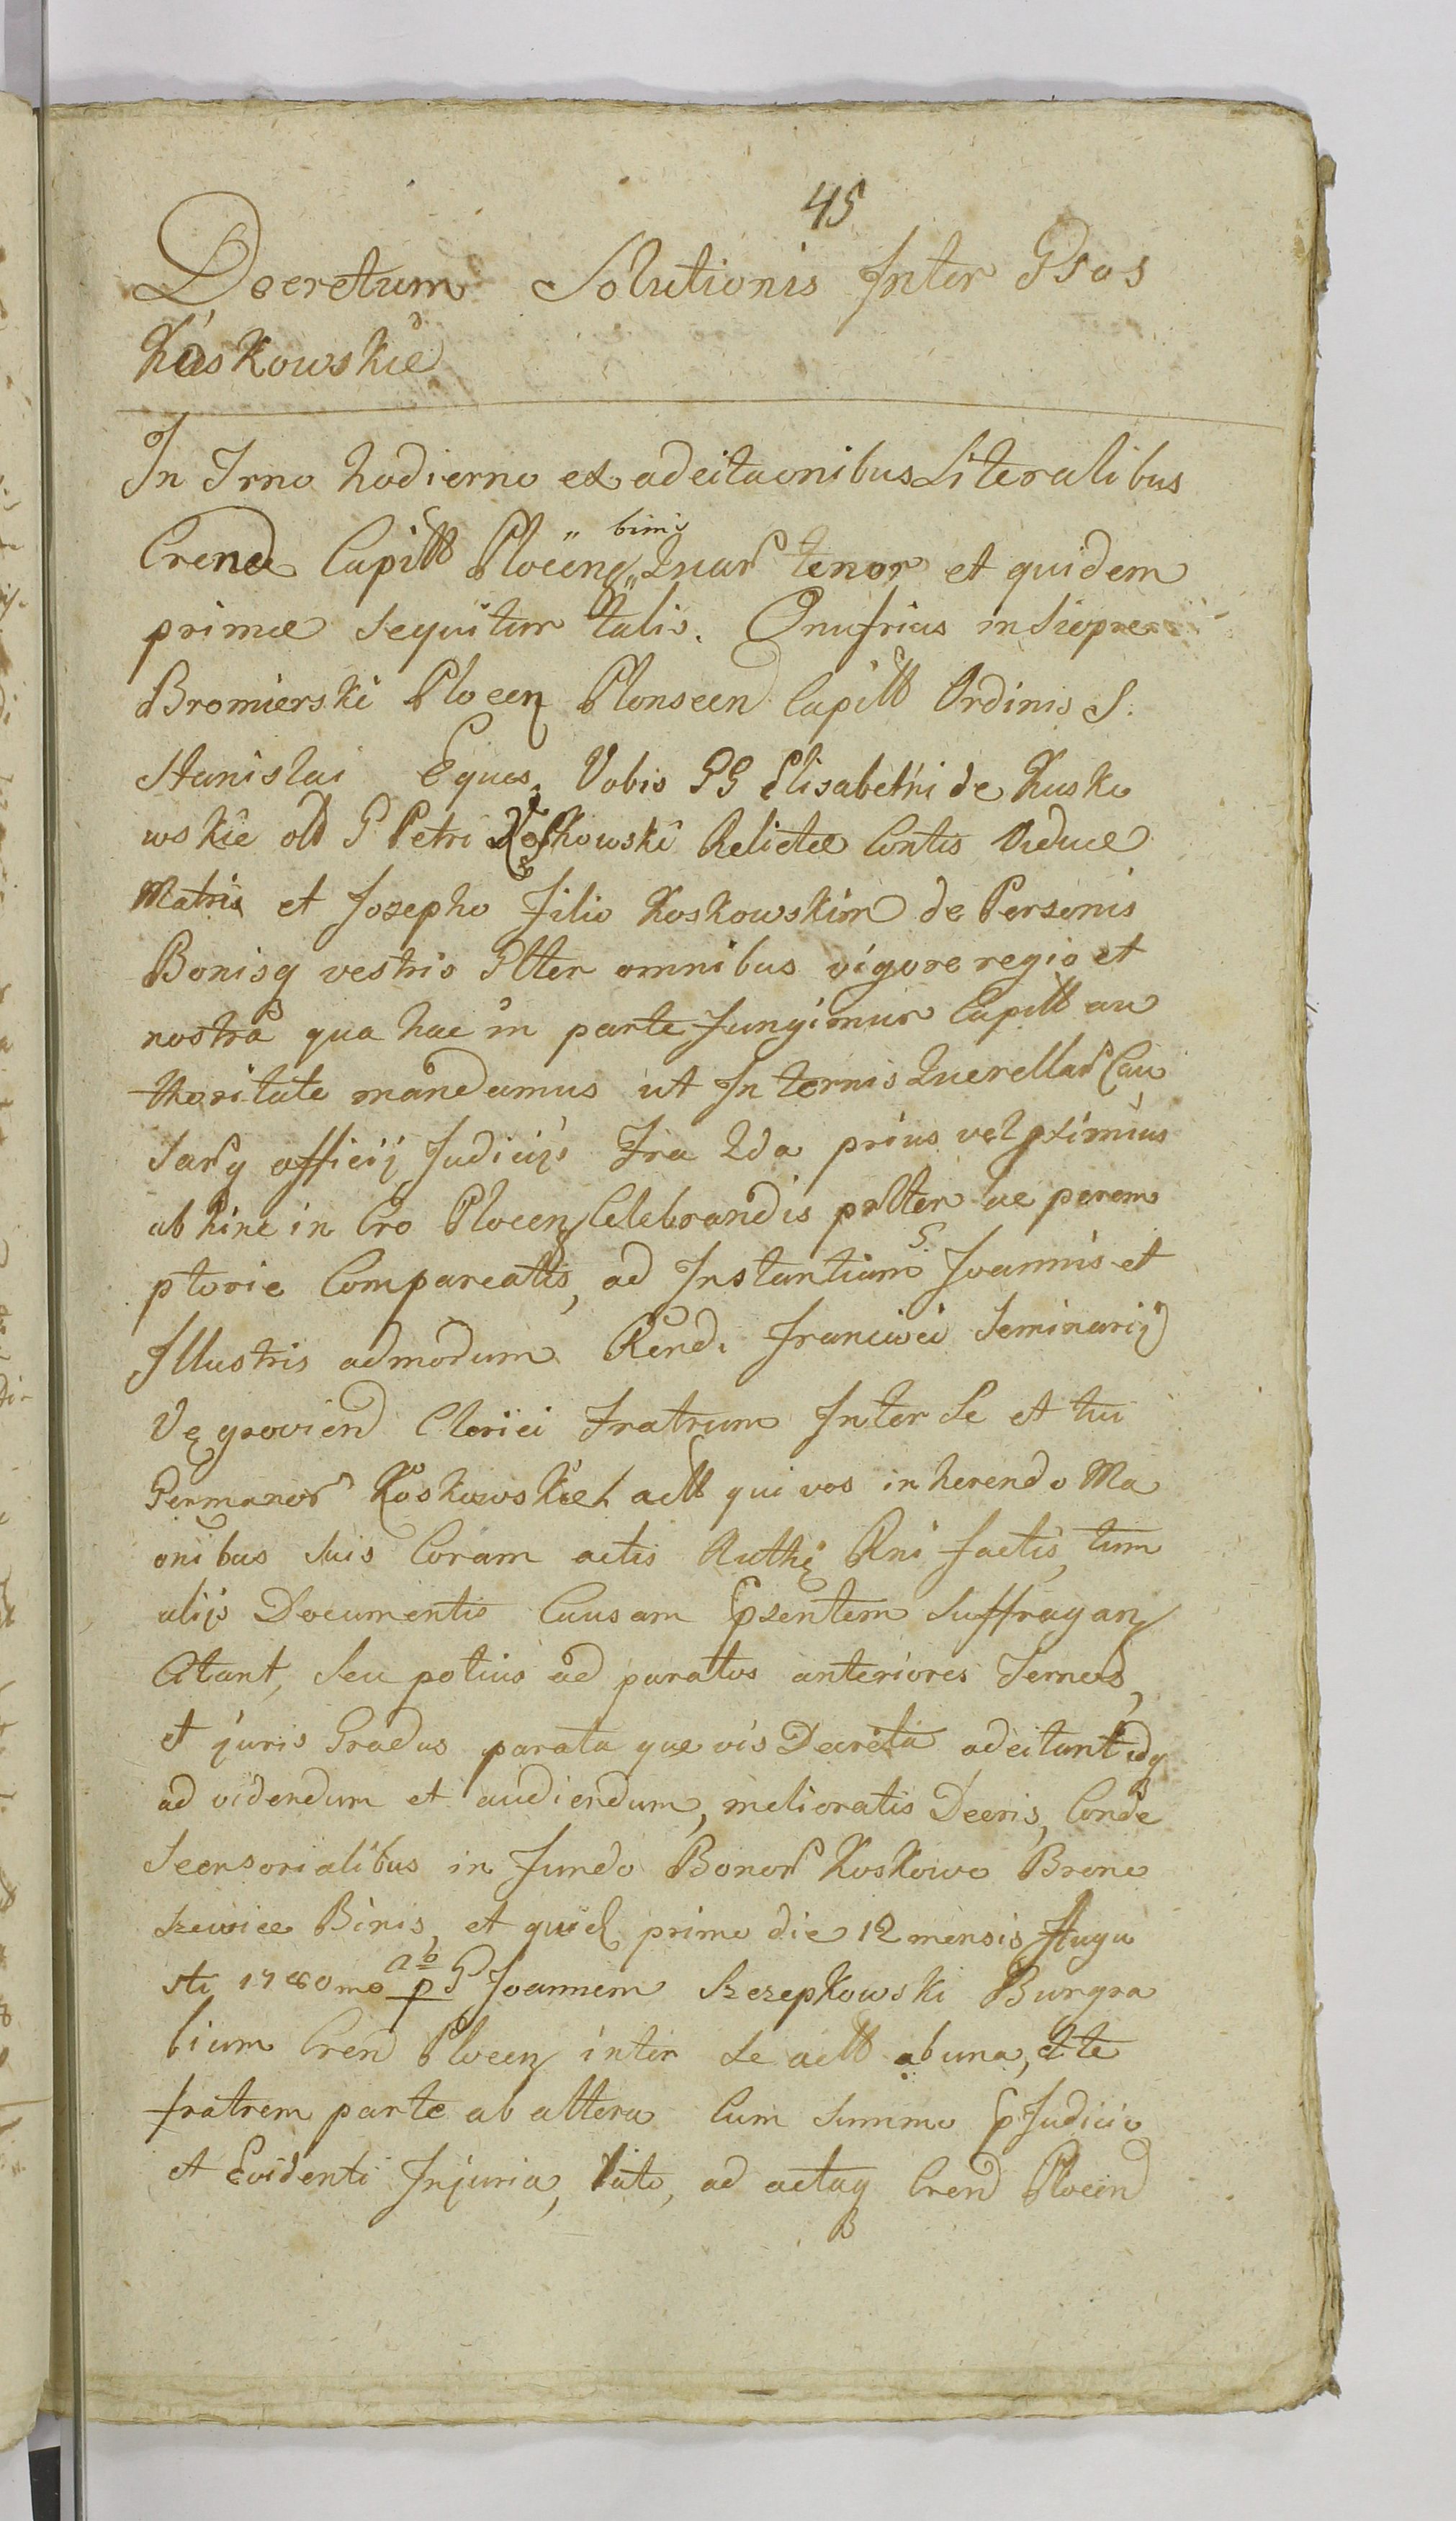 45
Decretum Solutionis Inter Gsos
Koskowskie
In Trno hodierno ex adcitaonibus Literalibus
Crens Capitt Plocens binis Quar tenor et quidem
primæ sequitur talis. Onufrius in Siepre
Bromierski Plocen Plonscen Capitt Ordinis S.
Stanislai Eques. Vobis GG Elisabethi de Kusko
wskie old G Petri Koskowski Relictæ Contis Viduæ
Matris et Josepho Filio Koskowskim de Personis
Bonisq vestris Gtter omnibus vigore regio et
nostra qua hac in parte fungimur Capitt au
thoritate mandamus ut In ternis Querellar Cau
sarq officij Judicijs Fra 2da prius vel pximius
ab hinc in Cro Plocen Celebrandis psltter ac perem
ptorie Compareatis, ad Instantiam S. Joannis et
Illustris admodum Rendi Francisci Seminarij
Vęgroviens Clerici Fratrum Inter Se et tui
Germanor Koskowskich actt qui vos inherendo Ma
onibus suis Coram actis Authen Rni factis, tum
alijs Documentis Causam Psentem Suffragan
Citant, Seu potius ad paratos anteriores Ternos,
et juris Gradus parata quævis Decreta adcitant idq
ad videndum et audiendum, melioratis Decris, Conde
scensorialibus in fundo Bonor Koskowo Brone
szewice Binis, et quid primo die 12 mensis Augu
sti 1780mo ab p G Joannem Szczepkowski Burgra
bium Cren Plocen inter se actt ab una, et te
fratrem parte ab altera Cum Summo Pjudicio
et Evidenti Injuria, lato, ad actaq Cren Plocen
B